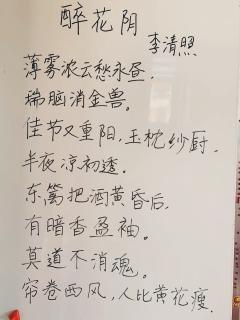 醉花阴
李清照
薄雾浓云愁永昼.
瑞脑消金兽。
佳节又重阳,玉枕纱厨.
半夜凉初透。
东篱把酒黄昏后,
有暗香盈袖。
莫道不消魂。
帘卷西风,人比黄花瘦.